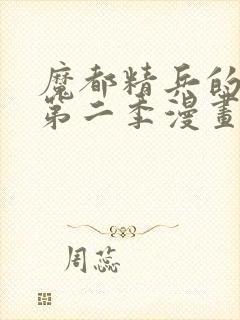 魔都精兵的
第二季漫畫
周蕊